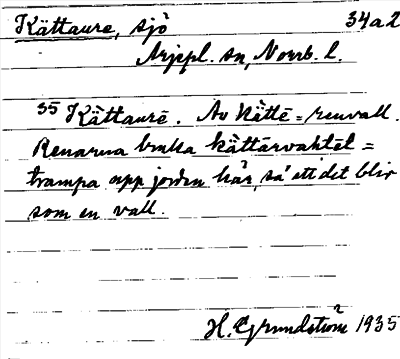 Kättaure, sjö 34a2
Arjepl. sn, Norrb. l.
35 Kàttaurē. Av kàttē = renvall.
Renarna bruka kàttārvahtēt =
trampa upp jorden här, så att det blir
som en vall.
H. Grundström 1935